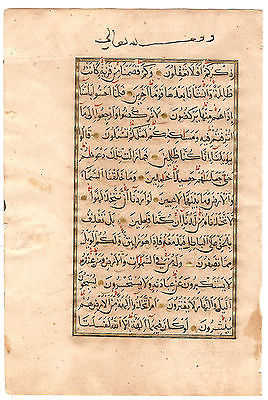 وقف لله تعالى
ذكركم افلا تعقلون وكم قصمنا من قرية كانت
ظالمة وانشأنا بعدها قوما اخرين فلما احسوا بأسنا
اذا هم منها يركضون لا تركضوا وارجعوا الى ما
اترفتم فيه ومساكنكم لعلكم تسئلون قالوا
يا ويلنا انا كنا ظالمين فما زالت تلك دعويهم
حتى جعلناهم حصيدا خامدين وما خلقنا السماء
والارض وما بينهما لاعبين لو اردنا ان نتخذ
لهوا لاتخذناه من لدنا ان كنا فاعلين بل نقذف
بالحق على الباطل فيدمغه فاذا هو زاهق ولكم الويل
مما تصفون وله من في السموات والارض ومن عنده
لا يستكبرون عن عبادته ولا يستحسرون يسبحون
الليل والنهار لا يفترون ام اتخذوا الهة من الارض هم
ينشرون لو كان فيهما الهة الا الله لفسدتا